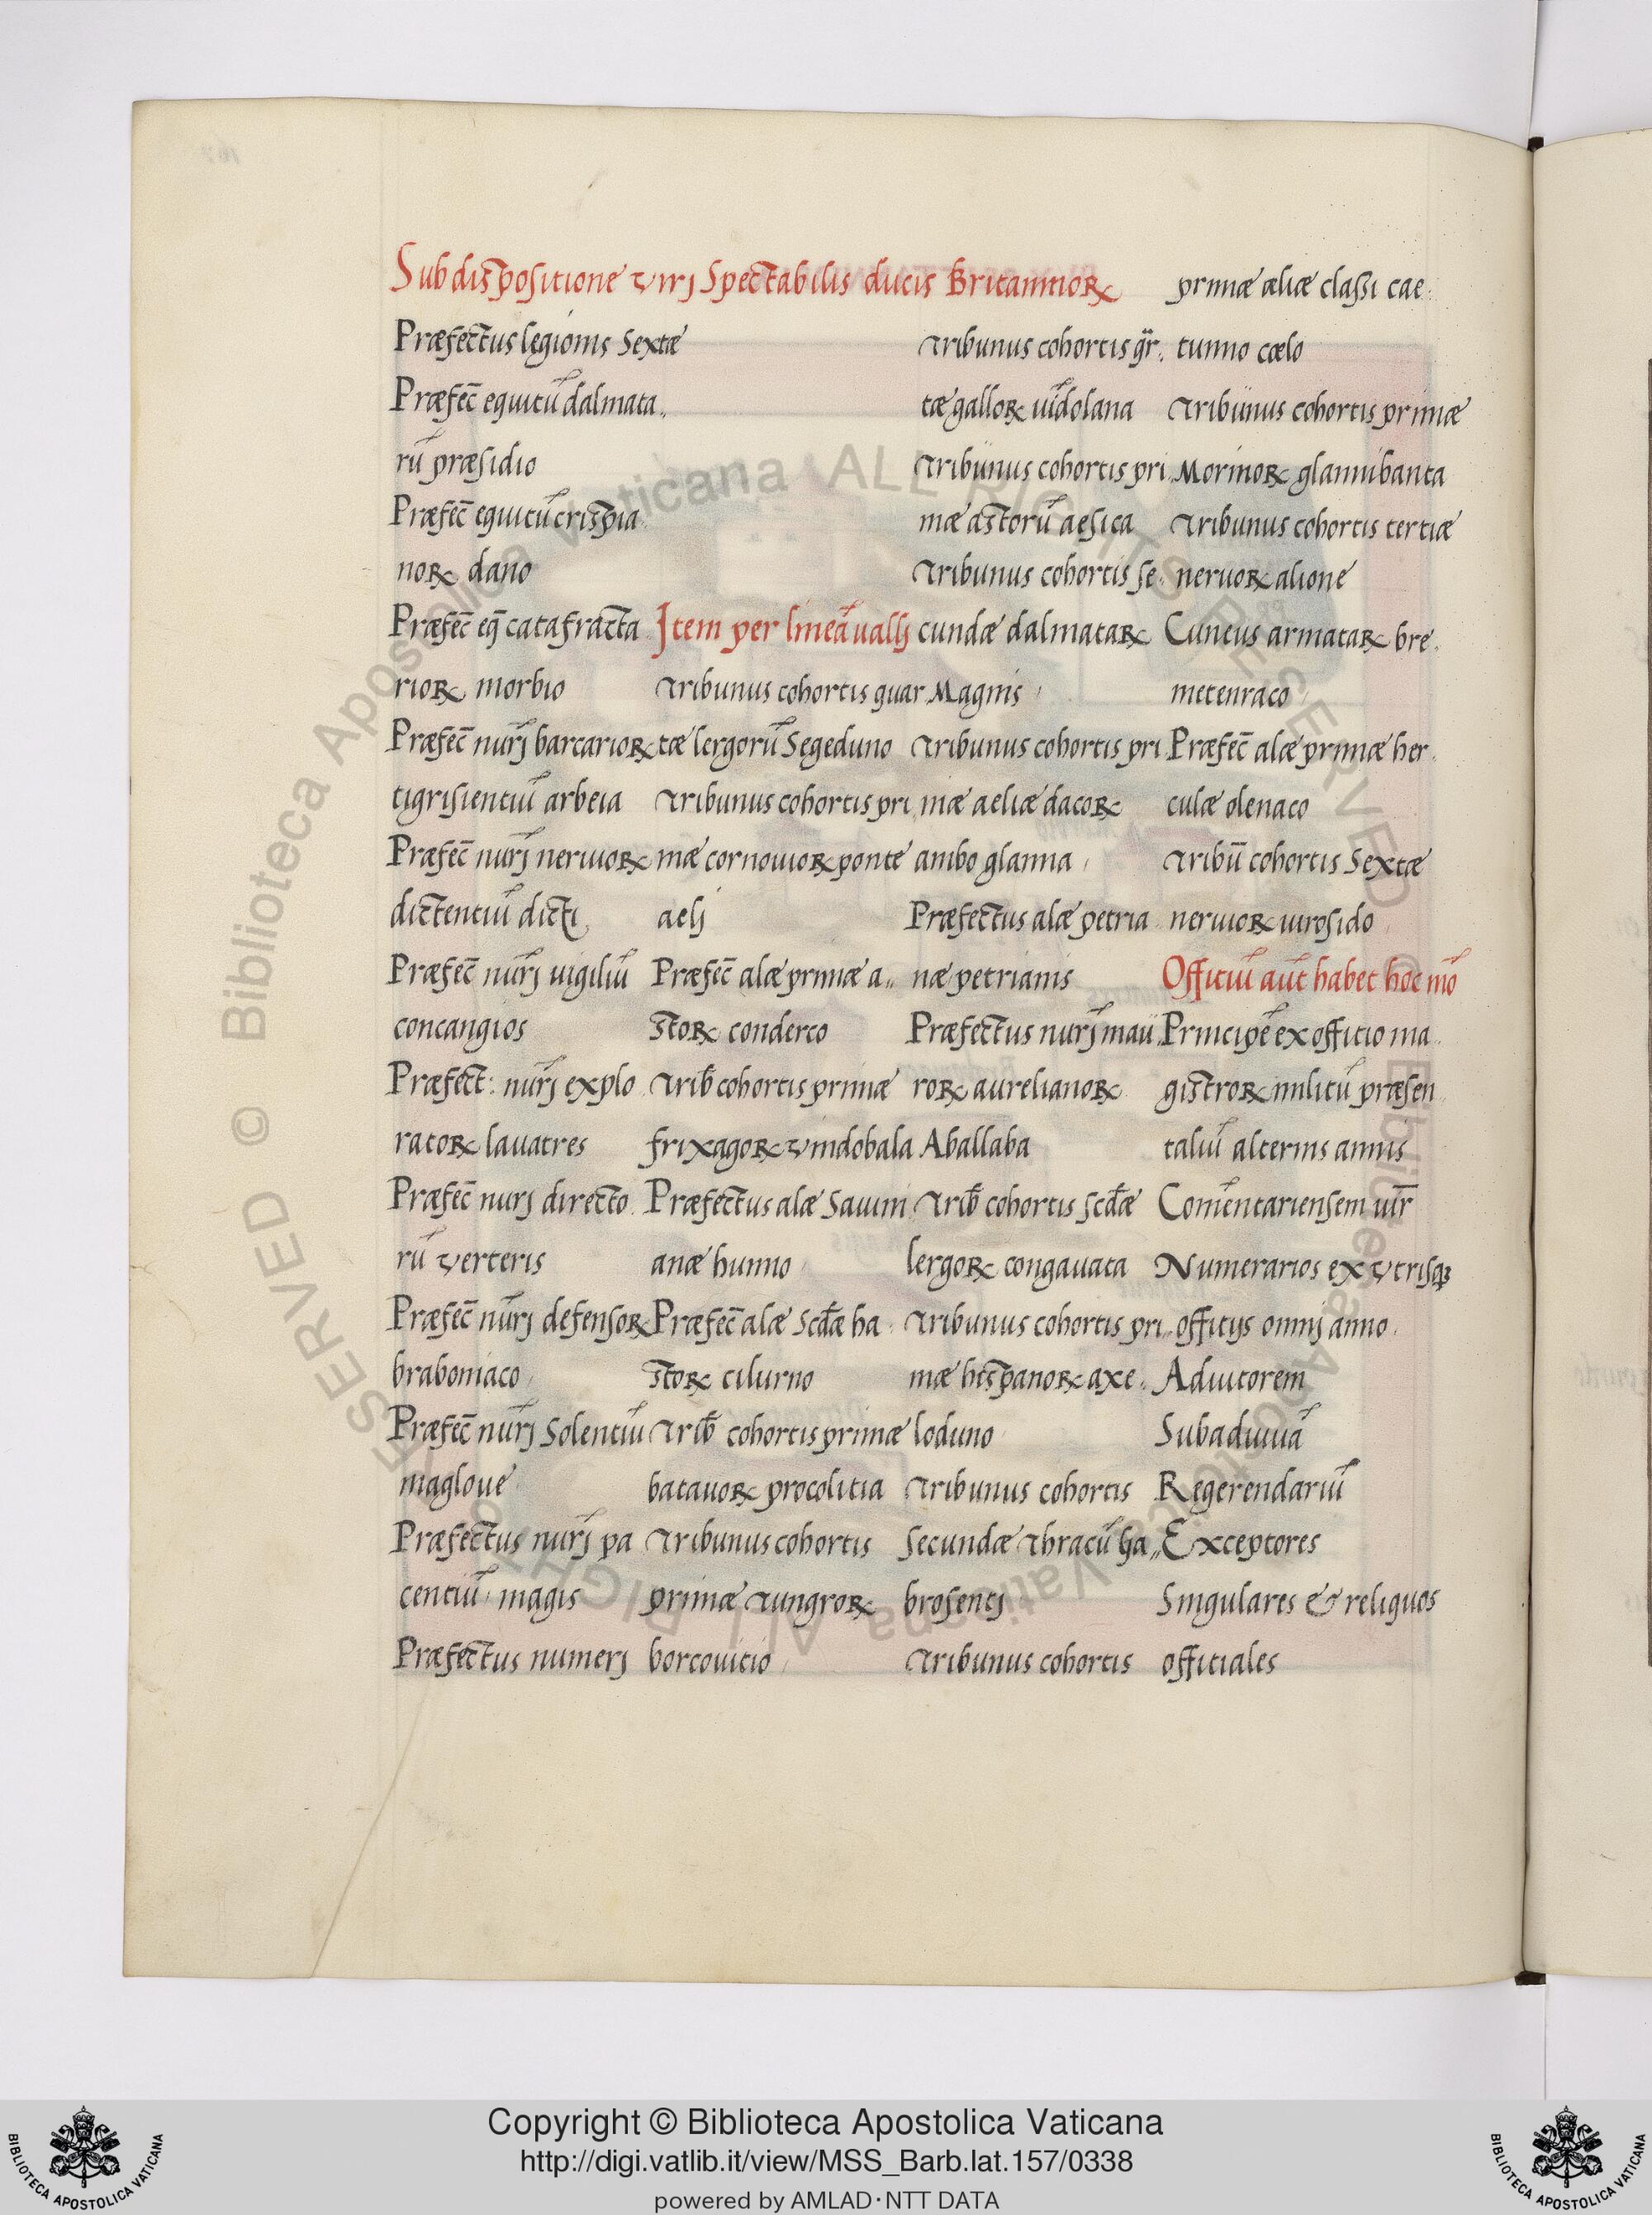 Sub dispositione viri Spectabilis ducis Britannioꝝ
Præfectus legionis Sextæ
Præfec̄ equitū dalmata„
rū præsidio
Præfec̄ equitū crispia
noꝝ dano
Præfec̄ eq̄ catafracta
rioꝝ morbio
Præfec̄ nūrj barcarioꝝ
tigrisientiū arbeia
Præfec̄ nūrj neruioꝝ
dictentiū dicti
Præfec̄ nūrj uigiliū
concangios
Præfect: nūrj explo
ratoꝝ lauatres
Præfec̄ nurj directo.
rū verteris
Præfec̄ nūrj defensoꝝ
braboniaco
Præfec̄ nūrj Solentiū
magloue
Præfectus nūrj pa
centiū magis
Præfectus numerj
Item per lineā uallj
Tribunus cohortis quar
tæ lergorū Segeduno
Tribunus cohortis pri
mæ cornouioꝝ ponte
aelj
Præfec̄ alæ primæ a„
stoꝝ conderco
Trib̄ cohortis primæ
frixagoꝝ vindobala
Præfectus alæ Sauini
anæ hunno
Præfec̄ alæ scd̄æ ha
stoꝝ cilurno
Trib̄ cohortis primæ
batauoꝝ procolitia
Tribunus cohortis
primæ tungroꝝ
borcouitio
Tribunus cohortis qr̈.
tæ galloꝝ uīdolana
Tribunus cohortis pri
mæ astorū aesica
Tribunus cohortis se
cundæ dalmataꝝ
Magnis
Tribunus cohortis pri
mæ aeliæ dacoꝝ
ambo glanna
Præfectus alæ petria
næ petrianis
Præfectus nūrj mau
roꝝ aurelianoꝝ
Aballaba
Trib̄ cohortis scd̄æ
lergoꝝ congauata
Tribunus cohortis pri„
mæ hispanoꝝ axe
loduno
Tribunus cohortis
secundæ Thracū ga„
brosentj
Tribunus cohortis
primæ æliæ classi cae
tunno cœlo
Tribunus cohortis primæ
Morinoꝝ glannibanta
Tribunus cohortis tertiæ
neruoꝝ alione
Cuneus armataꝝ bre
metenraco
Præfec̄ alæ primæ her
culæ olenaco
Tribū cohortis Sextæ
neruioꝝ uirosido
Offitiū aūt habet hoc mō
Principē ex offitio ma
gistroꝝ militū præsen
taliū alternis annis
Com̄entariensem utr̄
Numerarios ex vtrisqꝫ
offitijs omnj anno
Adiutorem
Subadiuuā
Regerendariū
Exceptores
Singulares & reliquos
offitiales
© Biblioteca Apostolica Vaticana ALL RIGHTS RESERVED
© Biblioteca Apostolica Vaticana ALL RIGHTS RESERVED
Copyright © Biblioteca Apostolica Vaticana
http://digi.vatlib.it/view/MSS_Barb.lat.157/0338
powered by AMLAD·NTT DATA
BIBLIOTECA APOSTOLICA VATICANA
BIBLIOTECA APOSTOLICA VATICANA